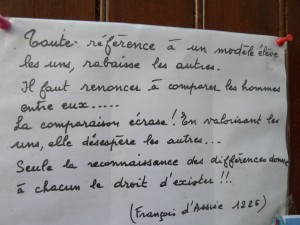 Toute référence à un modèle élève
les uns, rabaisse les autres.
Il faut renoncer à comparer les hommes
entre eux.....
La comparaison écrase ! En valorisant les
uns, elle désespère les autres...
Seule la reconnaissance des différences donne
à chacun le droit d'exister !!!
(François d'Assise 1226)